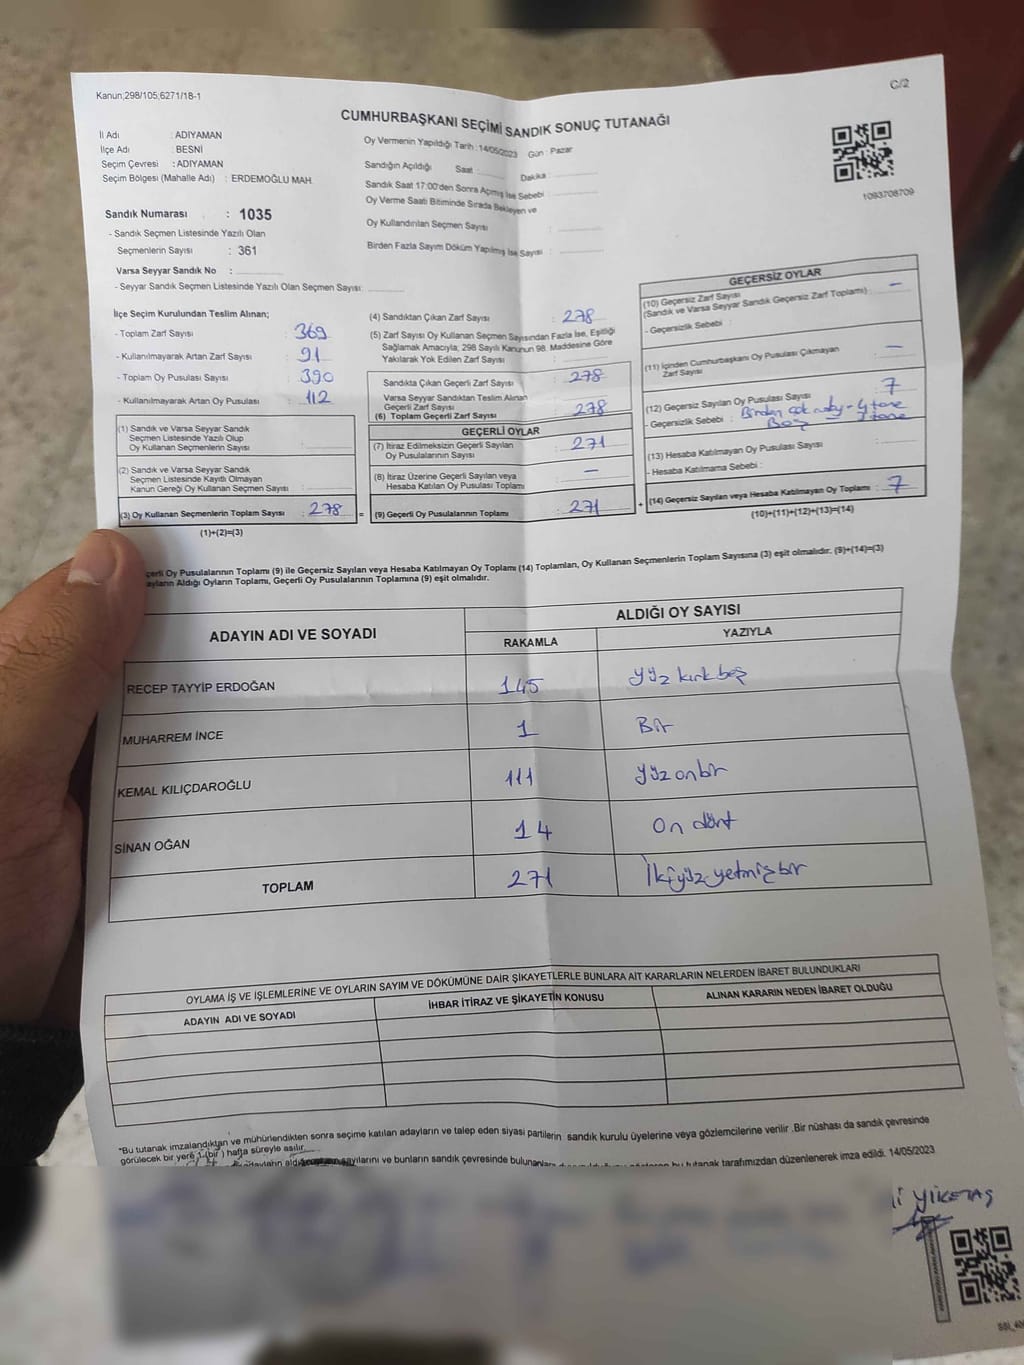 Kanun;298/105;6271/18-1
C/2
CUMHURBAŞKANI SEÇİMİ SANDIK SONUÇ TUTANAĞI
İl Adı : ADIYAMAN
İlçe Adı : BESNİ
Seçim Çevresi : ADIYAMAN
Seçim Bölgesi (Mahalle Adı) : ERDEMOĞLU MAH.
Sandık Numarası : 1035
- Sandık Seçmen Listesinde Yazılı Olan
Seçmenlerin Sayısı : 361
Varsa Seyyar Sandık No :
- Seyyar Sandık Seçmen Listesinde Yazılı Olan Seçmen Sayısı:
Oy Vermenin Yapıldığı Tarih :14/05/2023 Gün : Pazar
Sandığın Açıldığı Saat : Dakika :
Sandık Saat 17:00'den Sonra Açmış İse Sebebi :
Oy Verme Saati Bitiminde Sırada Bekleyen ve
Oy Kullandırılan Seçmen Sayısı :
Birden Fazla Sayım Döküm Yapılmış İse Sayısı :
1093708709
İlçe Seçim Kurulundan Teslim Alınan;
- Toplam Zarf Sayısı : 369
- Kullanılmayarak Artan Zarf Sayısı : 91
- Toplam Oy Pusulası Sayısı : 390
- Kullanılmayarak Artan Oy Pusulası : 112
(1) Sandık ve Varsa Seyyar Sandık
Seçmen Listesinde Yazılı Olup
Oy Kullanan Seçmenlerin Sayısı :
(2) Sandık ve Varsa Seyyar Sandık
Seçmen Listesinde Kayıtlı Olmayan
Kanun Gereği Oy Kullanan Seçmen Sayısı :
(3) Oy Kullanan Seçmenlerin Toplam Sayısı : 278 =
(1)+(2)=(3)
(4) Sandıktan Çıkan Zarf Sayısı : 278
(5) Zarf Sayısı Oy Kullanan Seçmen Sayısından Fazla İse, Eşitliği
Sağlamak Amacıyla; 298 Sayılı Kanunun 98. Maddesine Göre
Yakılarak Yok Edilen Zarf Sayısı :
Sandıkta Çıkan Geçerli Zarf Sayısı : 278
Varsa Seyyar Sandıktan Teslim Alınan
Geçerli Zarf Sayısı :
(6) Toplam Geçerli Zarf Sayısı : 278
GEÇERLİ OYLAR
(7) İtiraz Edilmeksizin Geçerli Sayılan
Oy Pusulalarının Sayısı : 271
(8) İtiraz Üzerine Geçerli Sayılan veya
Hesaba Katılan Oy Pusulası Toplamı : –
(9) Geçerli Oy Pusulalarının Toplamı : 271 +
GEÇERSİZ OYLAR
(10) Geçersiz Zarf Sayısı
(Sandık ve Varsa Seyyar Sandık Geçersiz Zarf Toplamı) : –
- Geçersizlik Sebebi :
(11) İçinden Cumhurbaşkanı Oy Pusulası Çıkmayan
Zarf Sayısı : –
(12) Geçersiz Sayılan Oy Pusulası Sayısı : 7
- Geçersizlik Sebebi : Birden çok - 4 tane
Boş tane
(13) Hesaba Katılmayan Oy Pusulası Sayısı :
- Hesaba Katılmama Sebebi :
(14) Geçersiz Sayılan veya Hesaba Katılmayan Oy Toplamı : 7
(10)+(11)+(12)+(13)=(14)
Oy Pusulalarının Toplamı (9) ile Geçersiz Sayılan veya Hesaba Katılmayan Oy Toplamı (14) Toplamları, Oy Kullanan Seçmenlerin Toplam Sayısına (3) eşit olmalıdır. (9)+(14)=(3)
Aldığı Oyların Toplamı, Geçerli Oy Pusulalarının Toplamına (9) eşit olmalıdır.
ADAYIN ADI VE SOYADI
ALDIĞI OY SAYISI
RAKAMLA YAZIYLA
RECEP TAYYİP ERDOĞAN 145 Yüz kırk beş
MUHARREM İNCE 1 Bir
KEMAL KILIÇDAROĞLU 111 Yüz on bir
SİNAN OĞAN 14 On dört
TOPLAM 271 İki yüz yetmiş bir
OYLAMA İŞ VE İŞLEMLERİNE VE OYLARIN SAYIM VE DÖKÜMÜNE DAİR ŞİKAYETLERLE BUNLARA AİT KARARLARIN NELERDEN İBARET BULUNDUKLARI
ADAYIN ADI VE SOYADI İHBAR İTİRAZ VE ŞİKAYETİN KONUSU ALINAN KARARIN NEDEN İBARET OLDUĞU
*Bu tutanak imzalandıktan ve mühürlendikten sonra seçime katılan adayların ve talep eden siyasi partilerin sandık kurulu üyelerine veya gözlemcilerine verilir .Bir nüshası da sandık çevresinde
görülecek bir yere 1 (bir ) hafta süreyle asılır.
sayılarını ve bunların sandık çevresinde bu tutanak tarafımızdan düzenlenerek imza edildi. 14/05/2023
YİKETAŞ